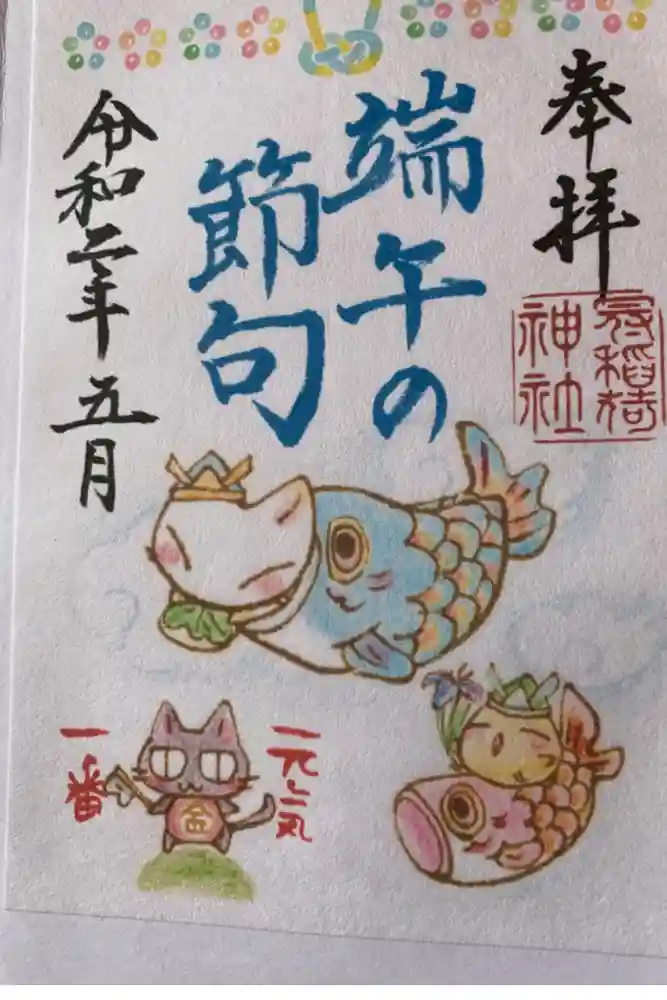 奉拝
冠稲荷
神社
端午の
節句
令和二年五月
元気
一番
金